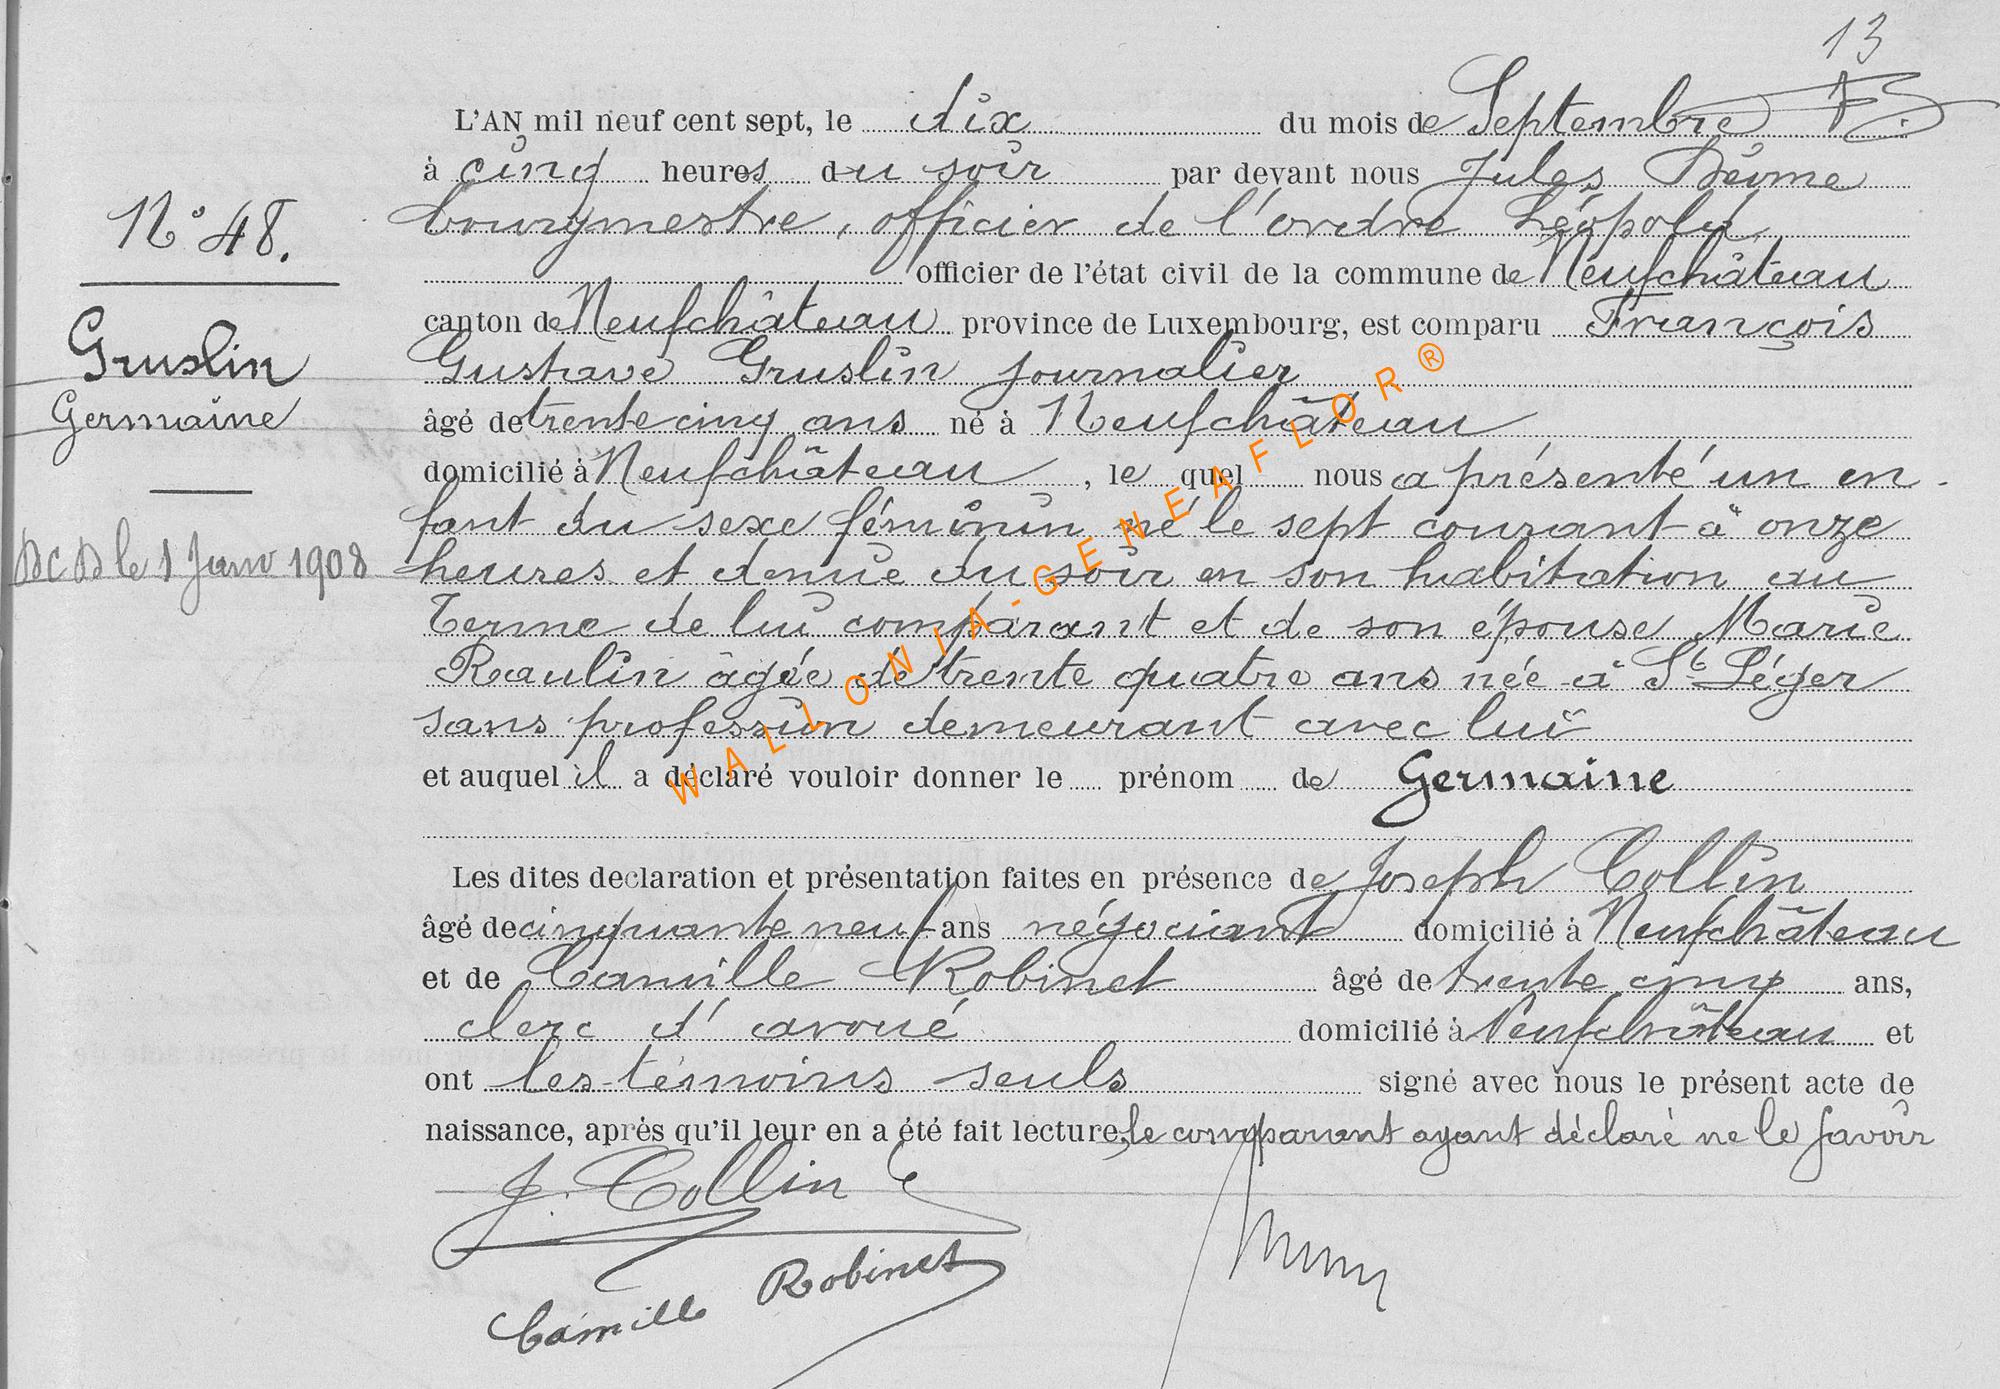 13
L'AN mil neuf cent sept, le dix du mois de Septembre
à cinq heures du soir par devant nous Jules
bourgmestre, officier de l'ordre Léopold
officier de l'état civil de la commune de Neufchâteau
canton de Neufchâteau province de Luxembourg, est comparu François
Gustave Gruslin journalier
âgé de trente cinq ans né à Neufchâteau
domicilié à Neufchâteau, le quel nous a présenté un en-
fant du sexe féminin né le sept courant à onze
heures et demie du soir en son habitation au
Terme de lui comparant et de son épouse Marie
Raulin âgée de trente quatre ans née à St Léger
sans profession demeurant avec lui
et auquel il a déclaré vouloir donner le prénom de Germaine
Les dites declaration et présentation faites en présence de Joseph Collin
âgé de cinquante neuf ans négociant domicilié à Neufchâteau
et de Camille Robinet âgé de trente cinq ans,
clerc d'avoué domicilié à Neufchâteau et
ont les témoins seuls signé avec nous le présent acte de
naissance, après qu'il leur en a été fait lecture, le comparant ayant déclaré ne le savoir
J. Collin
Camille Robinet
N° 48.
Gruslin
Germaine
DCD le 1 Janv 1908
WALLONIA-GENEAFLOR®